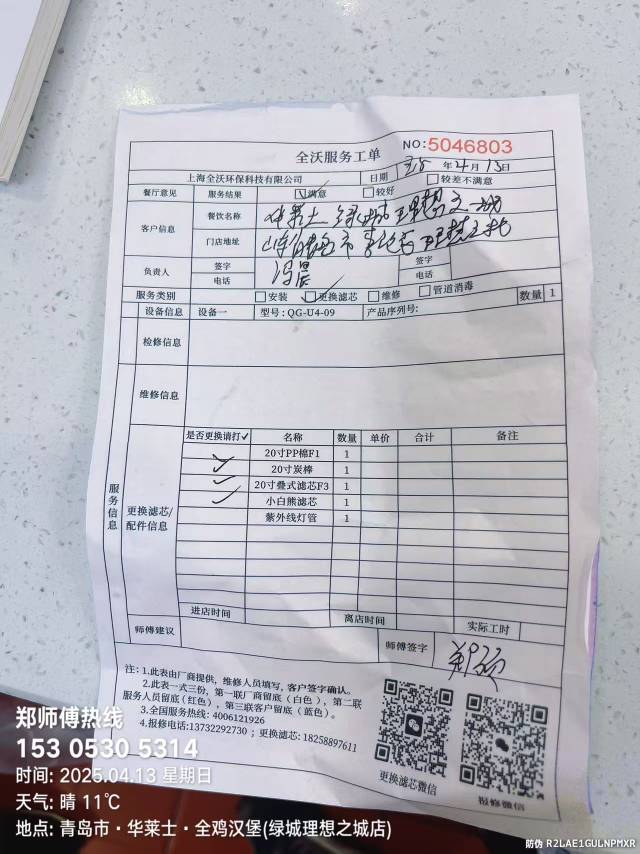 NO:5046803
全沃服务工单
上海全沃环保科技有限公司 日期 年4月13日
餐厅意见 服务结果 ☑满意 □较好 □较差不满意
客户信息 餐饮名称 华莱士 绿城理想之城
门店地址 山东省青岛市
负责人 签字 冯晨 签字
电话 电话
服务类别 □安装 ☑更换滤芯 □维修 □管道消毒 数量 1
设备信息 设备一 型号:QG-U4-09 产品序列号:
检修信息
维修信息
服务信息
更换滤芯/配件信息
是否更换请打✓ 名称 数量 单价 合计 备注
20寸PP棉F1 1
✓ 20寸炭棒 1
✓ 20寸叠式滤芯F3 1
✓ 小白熊滤芯 1
紫外线灯管 1
进店时间 离店时间 实际工时
师傅建议 师傅签字 郑硕
注:1.此表由厂商提供,维修人员填写,客户签字确认。
2.此表一式三份,第一联厂商留底(白色),第二联
服务人员留底(红色),第三联客户留底(蓝色)。
3.全国服务热线:4006121926
4.报修电话:13732292730;更换滤芯:18258897611
更换滤芯微信
报修微信
郑师傅热线
153 0530 5314
时间: 2025.04.13 星期日
天气: 晴 11℃
地点: 青岛市·华莱士·全鸡汉堡(绿城理想之城店)
防伪 R2LAE1GULNPMXR